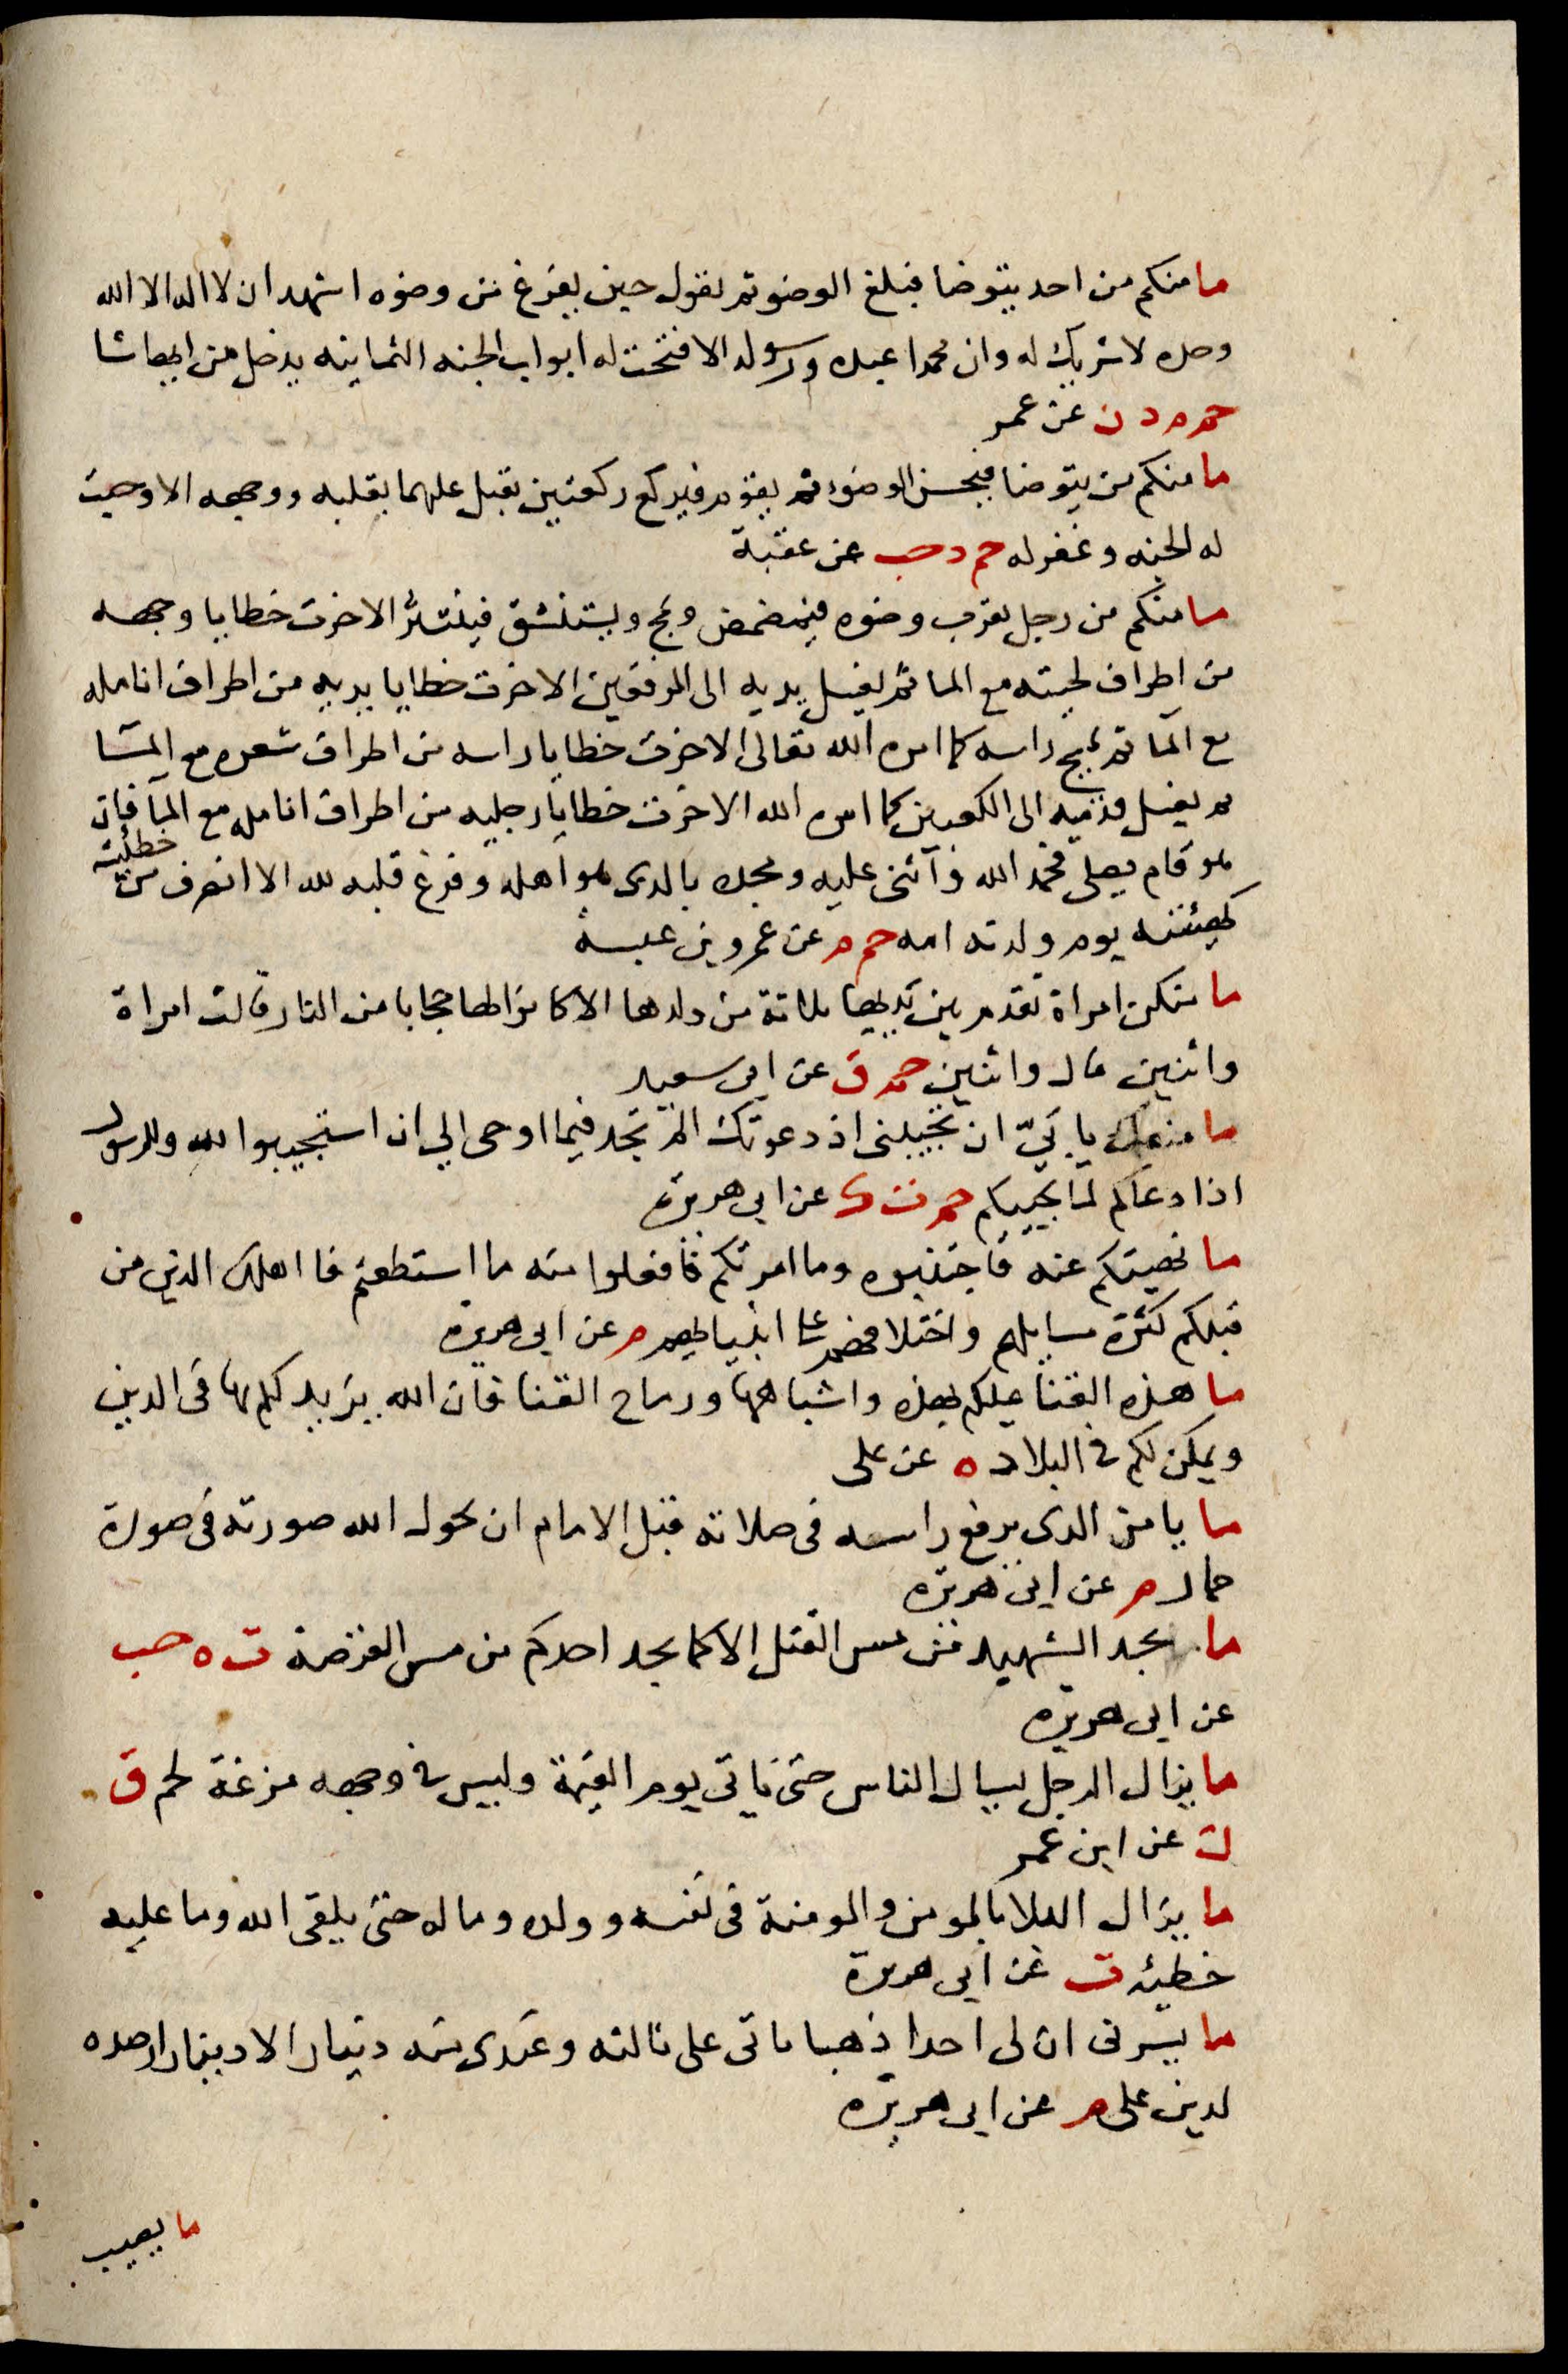 ما منكم من احد يتوضا فيبلغ الوضو ثم يقول حين يفرغ من وضوه اشهد ان لا اله الا الله
وحده لا شريك له وان محمدا عبده ورسوله الا فتحت له ابواب الجنه الثمانيه يدخل من ايها شا
حم م د ن عن عمر
ما منكم من يتوضا فيحسن الوضوء ثم يقوم فيركع ركعتين يقبل عليهما بقلبه ووجهه الا وجبت
له الجنه وغفر له حم د حب عن عقبة
ما منكم من رجل يقرب وضوه فيمضمض ويمج ويستنشق فينتثر الا خرت خطايا وجهه
من اطراف لحيته مع الما ثم يغسل يديه الى المرفقين الا خرت خطايا يديه من اطراف انامله
مع الما ثم يمسح راسه كما امره الله تعالى الا خرت خطايا راسه من اطراف شعره مع المآ
ثم يغسل قدميه الى الكعبين كما امره الله الا خرت خطايا رجليه من اطراف انامله مع المآ فان
هو قام فصلى فحمد الله وآثنى عليه ومجده بالدى هو اهله وفرغ قلبه لله الا انصرف من خطئيته
كهيئته يوم ولدته امه حم م عن عمرو بن عبسة
ما منكن امراة تقدم بين يديها ثلاثة من ولدها الا كانوا لها حجابا من النار قالت امراة
واثنين قال واثنين حم ق عن ابى سعيد
ما منعك يا بيّ ان تجيبنى اذ دعوتك الم تجد فيما اوحى الي ان استجيبوا لله وللرسول
اذا دعاكم لما يحييكم حم ت ك عن ابى هريرة
ما نهيتكم عنه فاجتنبوه وما امرتكم فافعلوا منه ما استطعتم فا اهلك الذين من
قبلكم كثرة مسايلهم واختلافهم على انبيايهم م عن ابى هريرة
ما هذه القنا عليكم بهذه واشباهها ورماح القنا فان الله يزيد لكم بها فى الدين
ويمكن لكم في البلاد ه عن على
ما يامن الدى يرفع راسه فى صلاته قبل الامام ان يحول الله صورته فى صورة
حمار م عن ابى هريرة
ما يجد الشهيد من مس القتل الا كما يجد احدكم من مس القرصة ت ه حب
عن ابى هريرة
ما يزال الرجل يسال الناس حتى ياتى يوم القيمة وليس في وجهه مزغة لحم ق
ن عن ابن عمر
ما يزال البلا بالمومن والمومنة فى نفسه وولده وماله حتى يلقى الله وما عليه
خطيئه ت عن ابى هريرة
ما يسرنى ان لى احدا ذهبا ياتى على ثالثه وعندى منه دينار الا دينار ارصده
لدين على م عن ابى هريرة
ما يصيب